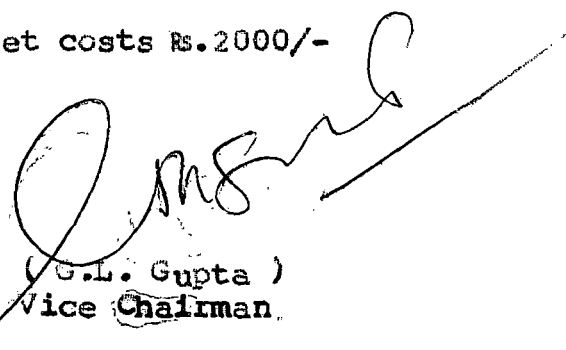 et costs Rs.2000/-
( G.L. Gupta )
Vice Chairman